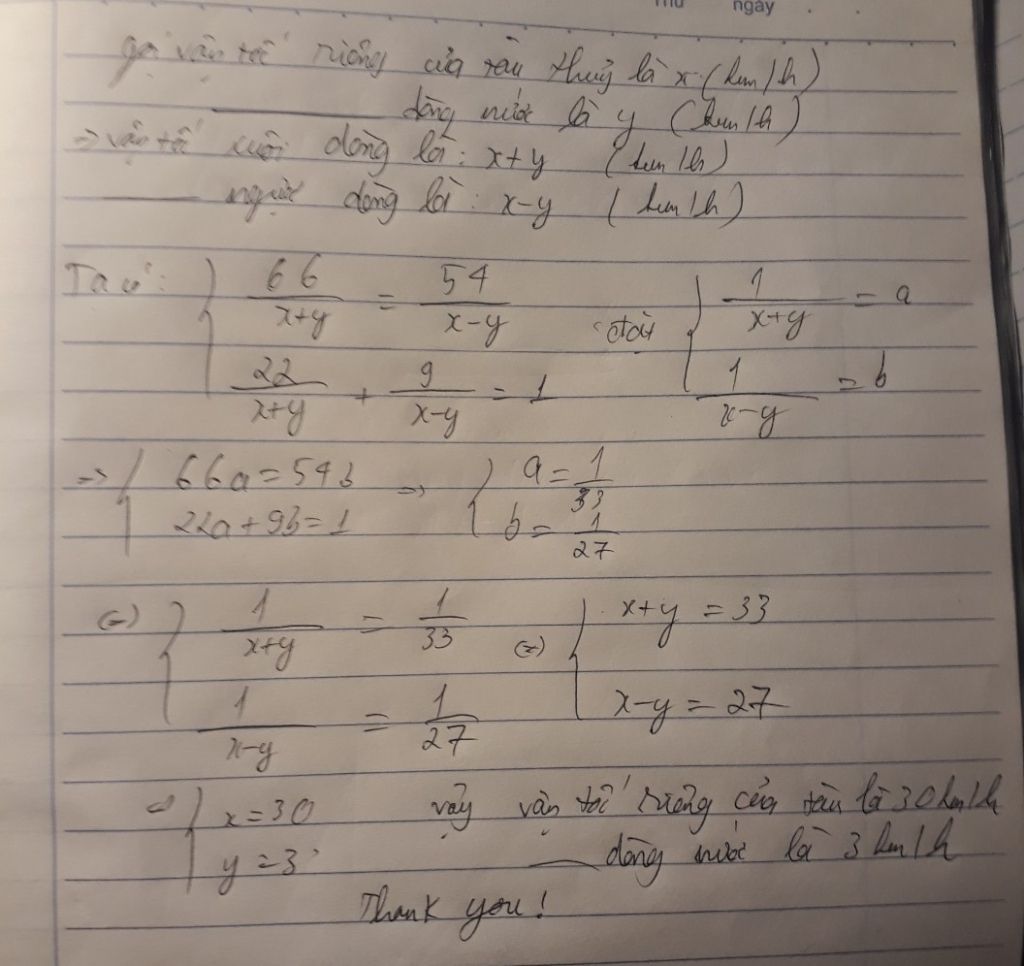 Thứ ngày
gọi vận tốc riêng của tàu thuỷ là x (km/h)
——— dòng nước là y (km/h)
=> vận tốc xuôi dòng là: x+y (km/h)
——— ngược dòng là: x-y (km/h)
Ta có: { 66/(x+y) = 54/(x-y) đặt { 1/(x+y) = a
22/(x+y) + 9/(x-y) = 1 1/(x-y) = b
=> { 66a = 54b => { a = 1/33
22a + 9b = 1 b = 1/27
(=) { 1/(x+y) = 1/33 (=) { x+y = 33
1/(x-y) = 1/27 x-y = 27
=> { x = 30 vậy vận tốc riêng của tàu là 30 km/h
y = 3 ——— dòng nước là 3 km/h
Thank you!